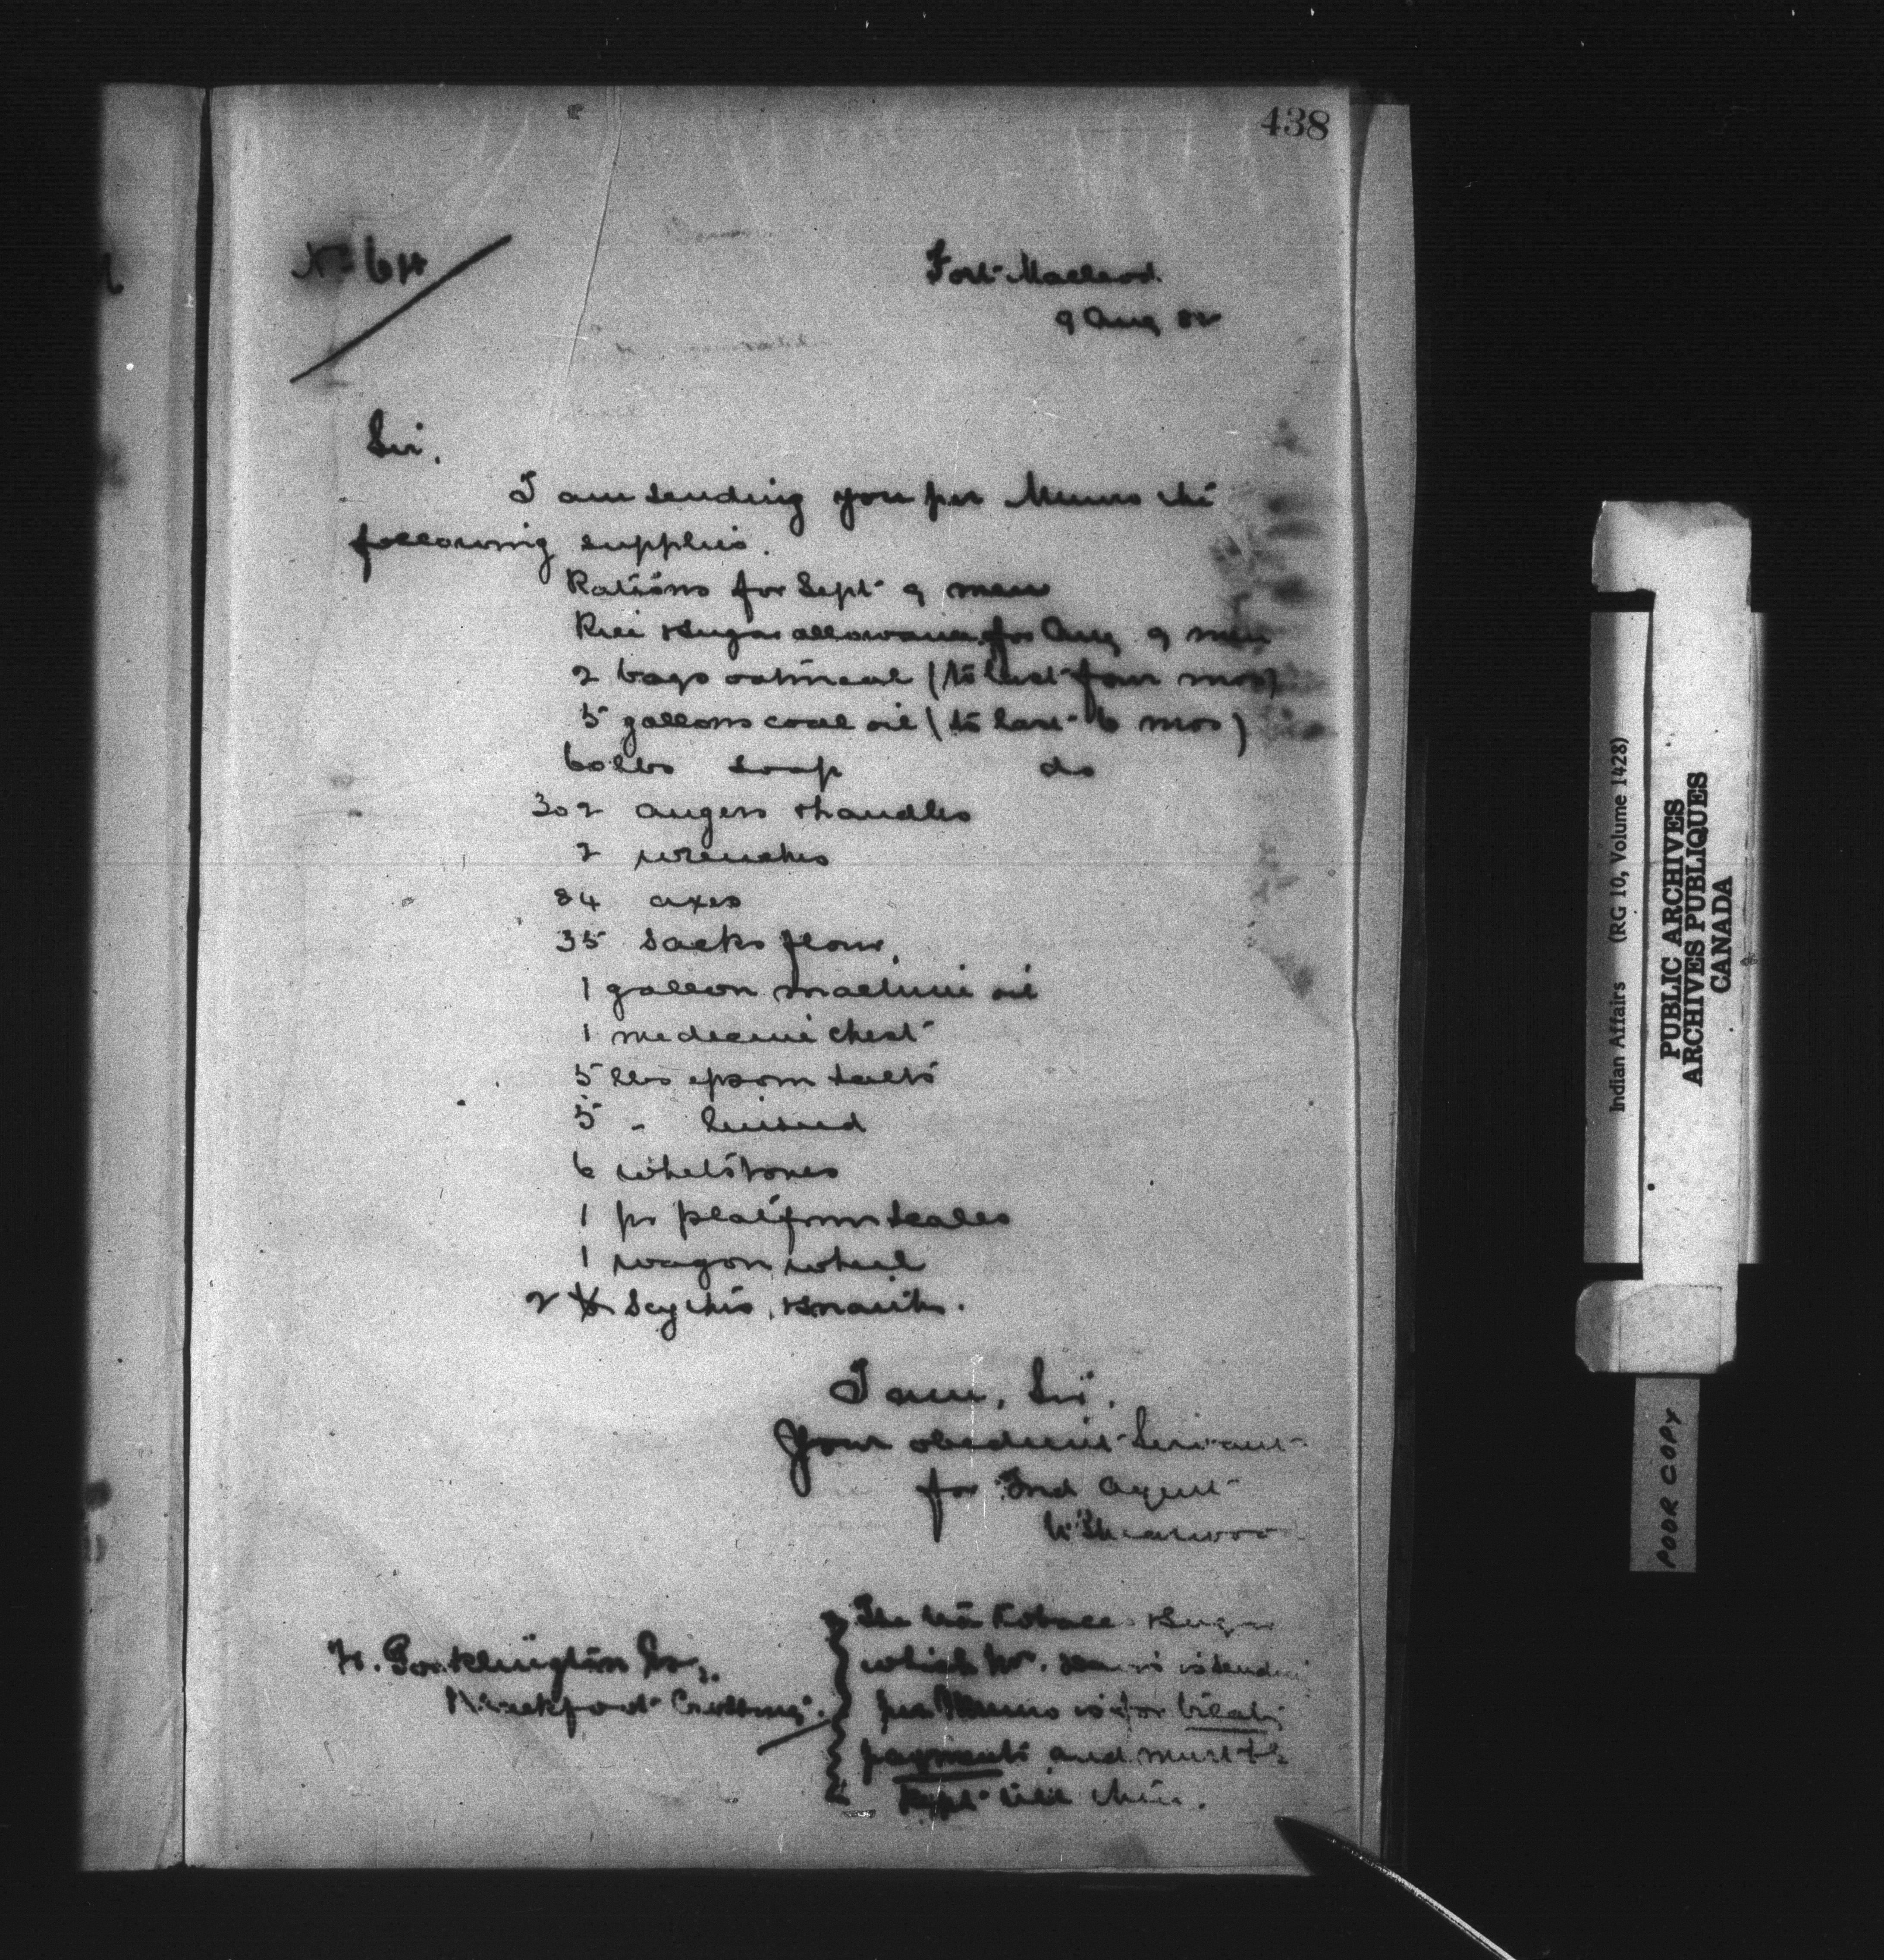 438
No 64
Fort Macleod
9 Aug 82
Sir,
I am sending you per Munro the
following supplies.
Rations for Sept 9 men
Rice & sugar allowance for Aug 9 men
2 bags oatmeal (to last four mos)
5 gallons coal oil (to last 6 mos)
60 lbs soap do
302 augers & handles
2 wrenches
84 axes
35 sacks flour,
1 gallon machine oil
1 medecine chest
5 lbs epsom salts
5 " linseed
6 whetstones
1 pr platform scales
1 wagon wheel
2 Scythes, & snaiths.
I am, Sir,
Your obedient Servant
for Ind Agent
W Sherwood
W. Pocklington Esq.
Blackfoot Crossing.
The tea tobacco & sugar
which Mr. is sending
per Munro is for treaty
payments and must be
kept till then.
Indian Affairs (RG 10, Volume 1428)
PUBLIC ARCHIVES
ARCHIVES PUBLIQUES
CANADA
POOR COPY